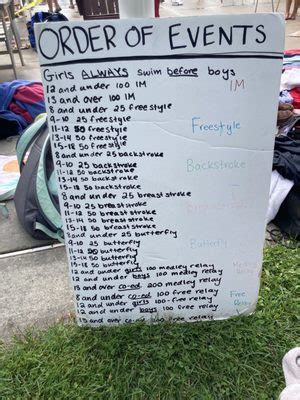 ORDER OF EVENTS
Girls ALWAYS swim before boys
12 and under 100 IM
13 and over 100 IM
IM
8 and under 25 freestyle
9-10 25 freestyle
11-12 50 freestyle
13-14 50 freestyle
15-18 50 freestyle
Freestyle
8 and under 25 backstroke
9-10 25 backstroke
11-12 50 backstroke
13-14 50 backstroke
15-18 50 backstroke
Backstroke
8 and under 25 breast stroke
9-10 25 breast stroke
11-12 50 breast stroke
13-14 50 breast stroke
15-18 50 breast stroke
8 and under 25 butterfly
9-10 25 butterfly
11-12 50 butterfly
13-14 50 butterfly
15-18 50 butterfly
Butterfly
12 and under girls 100 medley relay
12 and under boys 100 medley relay
13 and over co-ed 200 medley relay
8 and under co-ed 100 free relay
12 and under girls 100 free relay
12 and under boys 100 free relay
13 and over co-ed free relay
Free
Relay